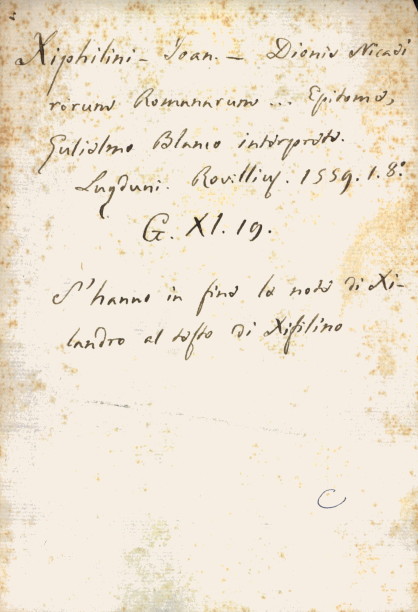 Xiphilini - Joan. - Dionis Nicaei
rerum Romanarum ... Epitome,
Gulielmo Blanco interprete.
Lugduni. Rovillius. 1559. 1. 8.°
G. XI. 19.
S'hanno in fine le note di Xi-
landro al testo di Xifilino